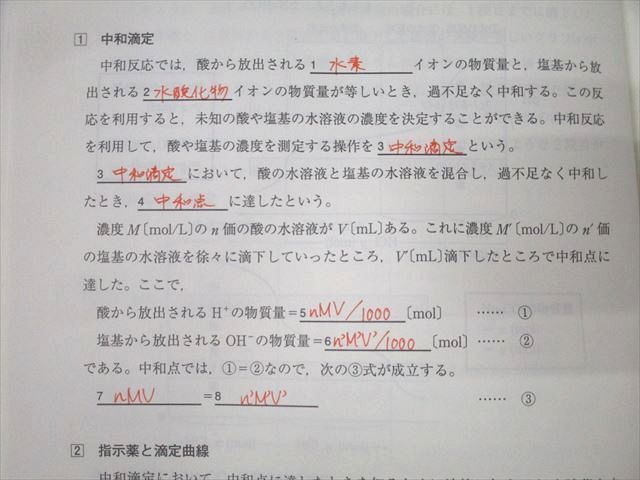 1 中和滴定
中和反応では，酸から放出される 1 水素 イオンの物質量と，塩基から放
出される 2 水酸化物 イオンの物質量が等しいとき，過不足なく中和する。この反
応を利用すると，未知の酸や塩基の水溶液の濃度を決定することができる。中和反応
を利用して，酸や塩基の濃度を測定する操作を 3 中和滴定 という。
3 中和滴定 において，酸の水溶液と塩基の水溶液を混合し，過不足なく中和し
たとき，4 中和点 に達したという。
濃度 M〔mol/L〕の n 価の酸の水溶液が V〔mL〕ある。これに濃度 M′〔mol/L〕の n′ 価
の塩基の水溶液を徐々に滴下していったところ，V′〔mL〕滴下したところで中和点に
達した。ここで，
酸から放出される H⁺の物質量＝5 nMV/1000〔mol〕 …… ①
塩基から放出される OH⁻の物質量＝6 n'M'V'/1000〔mol〕 …… ②
である。中和点では，①＝②なので，次の③式が成立する。
7 nMV ＝8 n'M'V' …… ③
2 指示薬と滴定曲線